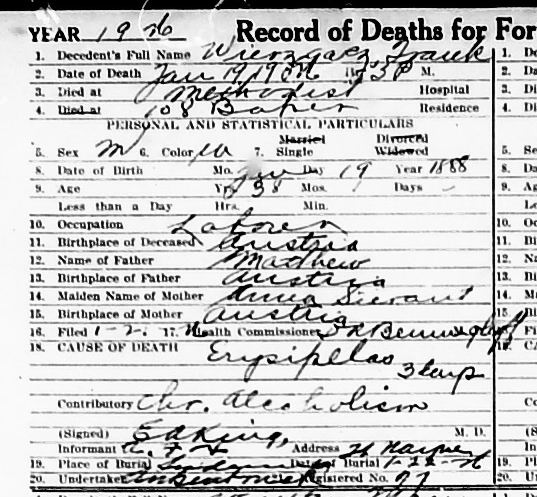 YEAR 1926 Record of Deaths for For
1. Decedent's Full Name Wierzgacz, Frank
2. Date of Death Jan 19, 1926 P M.
3. Died at Methodist Hospital
4. Died at 108 Baker Residence
PERSONAL AND STATISTICAL PARTICULARS
Married Divorced
5. Sex M 6. Color W 7. Single Widowed
8. Date of Birth Mo. Jan Day 19 Year 1888
9. Age Yrs 38 Mos. Days -
Less than a Day Hrs. Min.
10. Occupation Laborer
11. Birthplace of Deceased Austria
12. Name of Father Matthew
13. Birthplace of Father Austria
14. Maiden Name of Mother Anna
15. Birthplace of Mother Austria
16. Filed 17. Health Commissioner
18. CAUSE OF DEATH Erysipelas
3 days
Contributory Chr. Alcoholism
(Signed) E A King, M. D.
Informant Address
19. Place of Burial Date of Burial 1-22-26
20. Undertaker Registered No.